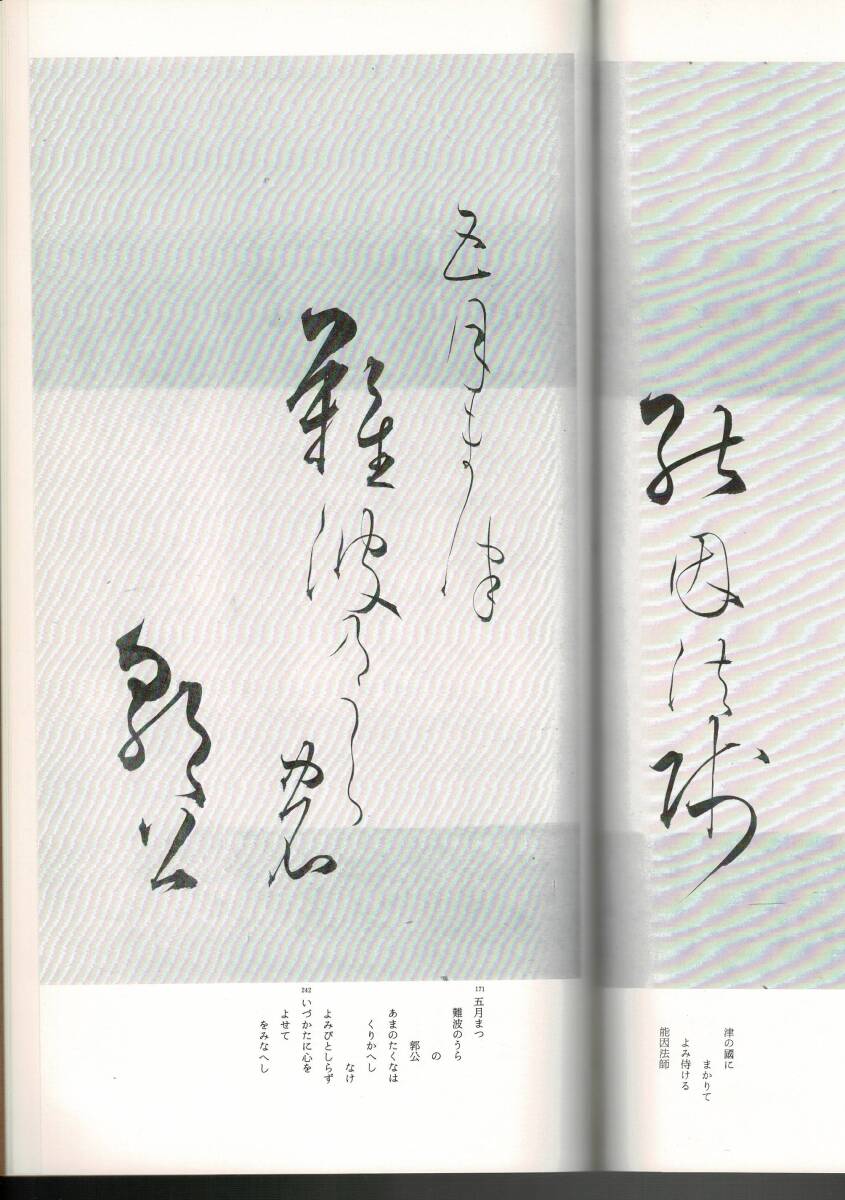 能因法師
津の國に
まかりて
よみ侍ける
能因法師
五月ま津
難波乃うら
郭公
171 五月まつ
難波のうら
の
郭公
あまのたくなは
くりかへし
なけ
よみびとしらず
242 いづかたに心を
よせて
をみなへし